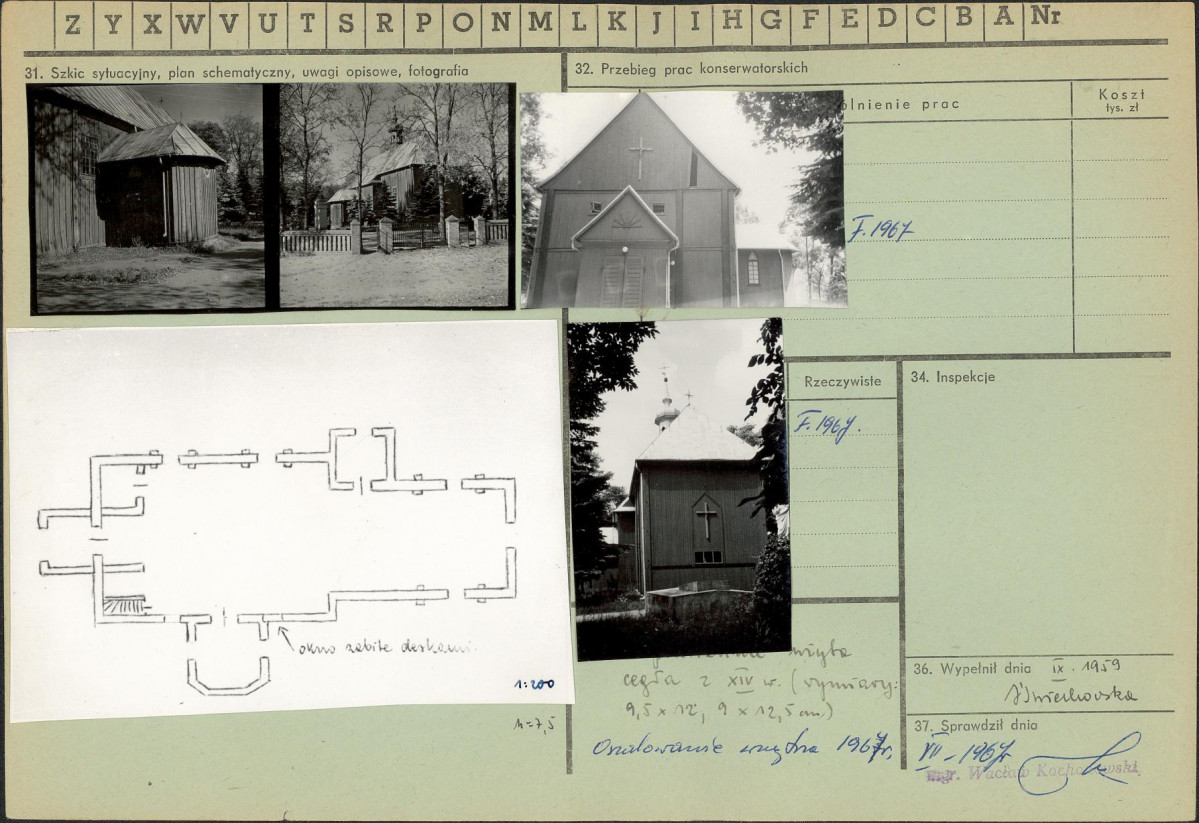 Z Y X W V U T S R P O N M L K J I H G F E D C B A Nr
31. Szkic sytuacyjny, plan schematyczny, uwagi opisowe, fotografia
32. Przebieg prac konserwatorskich
ólnienie prac
Koszt
tys. zł
F. 1967
Rzeczywiste
34. Inspekcje
F. 1967.
okno zabite deskami.
1:200
h=7,5
cegła z XIV w. (wymiary:
9,5 x 12, 9 x 12,5 cm)
Oszalowanie wnętrza 1967r.
36. Wypełnił dnia IX. 1959
37. Sprawdził dnia
VII - 1967r
mgr. Wacław